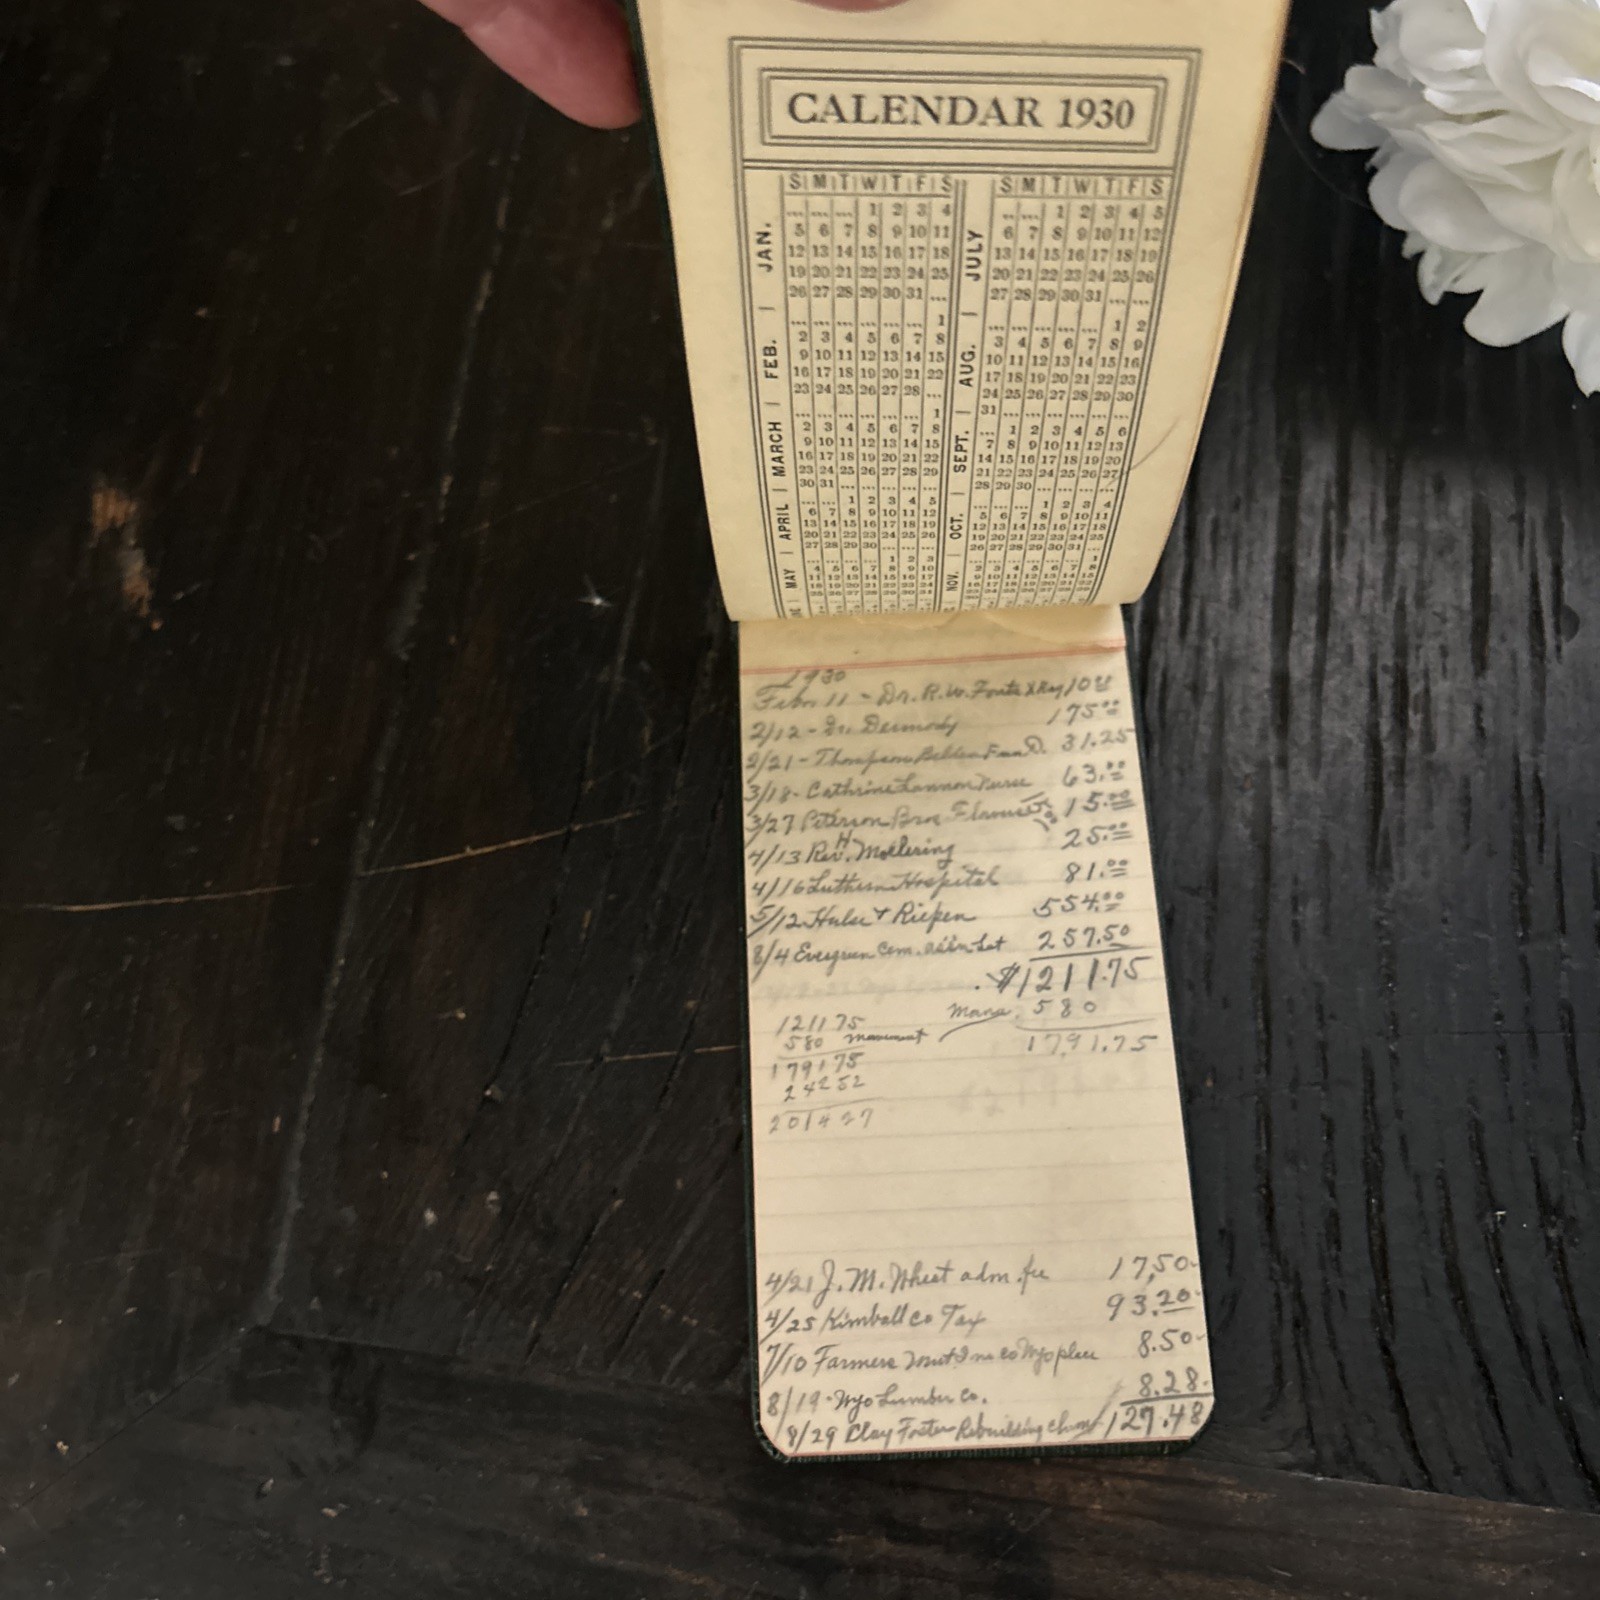 CALENDAR 1930
S M T W T F S
JAN.
... ... ... 1 2 3 4
5 6 7 8 9 10 11
12 13 14 15 16 17 18
19 20 21 22 23 24 25
26 27 28 29 30 31 ...
FEB.
... ... ... ... ... ... 1
2 3 4 5 6 7 8
9 10 11 12 13 14 15
16 17 18 19 20 21 22
23 24 25 26 27 28 ...
MARCH
... ... ... ... ... ... 1
2 3 4 5 6 7 8
9 10 11 12 13 14 15
16 17 18 19 20 21 22
23 24 25 26 27 28 29
30 31 ... ... ... ... ...
APRIL
... ... 1 2 3 4 5
6 7 8 9 10 11 12
13 14 15 16 17 18 19
20 21 22 23 24 25 26
27 28 29 30 ... ... ...
MAY
... ... ... ... 1 2 3
4 5 6 7 8 9 10
11 12 13 14 15 16 17
18 19 20 21 22 23 24
25 26 27 28 29 30 31
S M T W T F S
JULY
... ... 1 2 3 4 5
6 7 8 9 10 11 12
13 14 15 16 17 18 19
20 21 22 23 24 25 26
27 28 29 30 31 ... ...
AUG.
... ... ... ... ... 1 2
3 4 5 6 7 8 9
10 11 12 13 14 15 16
17 18 19 20 21 22 23
24 25 26 27 28 29 30
31 ... ... ... ... ... ...
SEPT.
... 1 2 3 4 5 6
7 8 9 10 11 12 13
14 15 16 17 18 19 20
21 22 23 24 25 26 27
28 29 30 ... ... ... ...
OCT.
... ... ... 1 2 3 4
5 6 7 8 9 10 11
12 13 14 15 16 17 18
19 20 21 22 23 24 25
26 27 28 29 30 31 ...
NOV.
... ... ... ... ... ... 1
2 3 4 5 6 7 8
9 10 11 12 13 14 15
16 17 18 19 20 21 22
23 24 25 26 27 28 29
30
1930
11 - Dr. R.W. Fouts XRay 10
2/12 - Dr. Dermody 175.00
2/21 - Thompson Belden D. 31.25
3/18 - Cathrine Lannon Nurse 63.00
3/27 Peterson Bros 15.00
4/13 Rev. H. Moellering 25.00
4/16 Luthern Hospital 81.00
5/12 Hulse + Riepen 554.00
8/4 Evergreen Cem. Assn Lot 257.50
$1211.75
Monu. 580
1791.75
121175
580 monument
179175
24252
201427
4/21 J. M. Wheat adm. fee 17.50
4/25 Kimball Co Tax 93.20
7/10 Farmers Co Wyo place 8.50
8/19 - Wyo Lumber Co. 8.28
8/29 Clay Foster Rebuilding 127.48